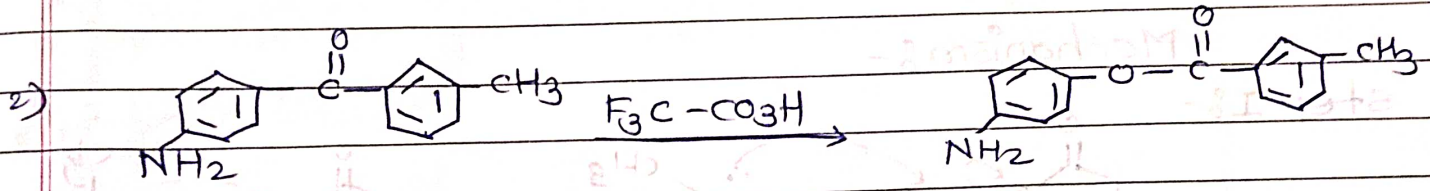 2)
O
||
C
CH3
NH2
F3C-CO3H
O
||
O-C
CH3
NH2